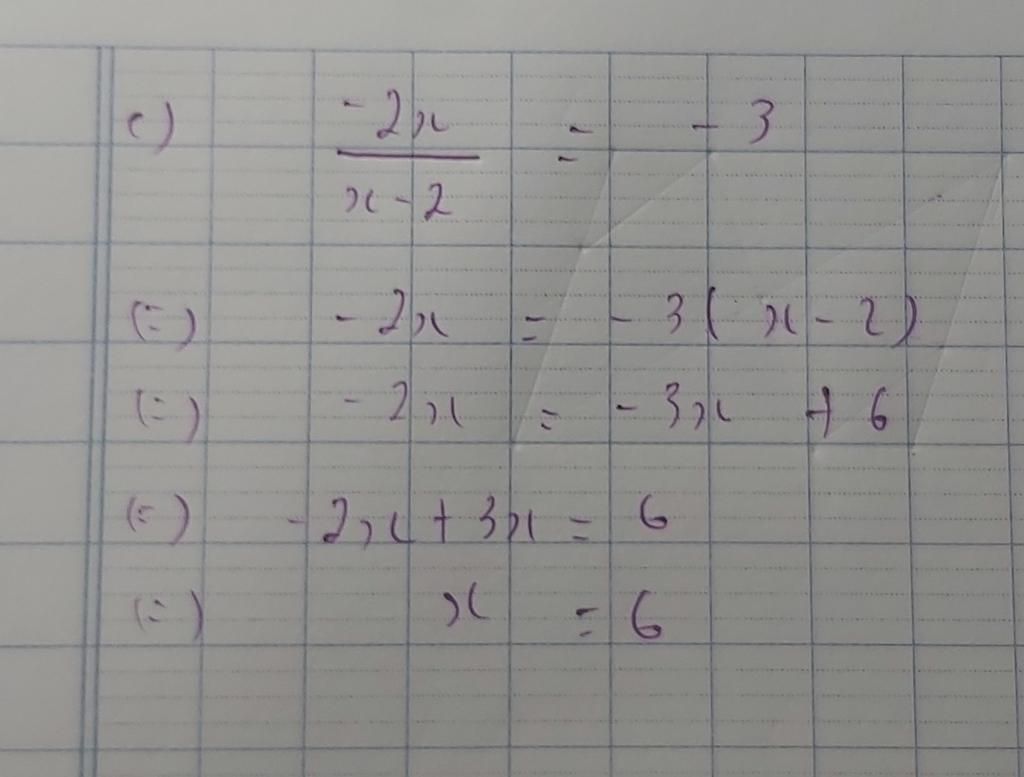 c) -2x / x - 2 = - 3
(=) - 2x = - 3( x - 2)
(=) - 2x = - 3x + 6
(=) - 2x + 3x = 6
(=) x = 6